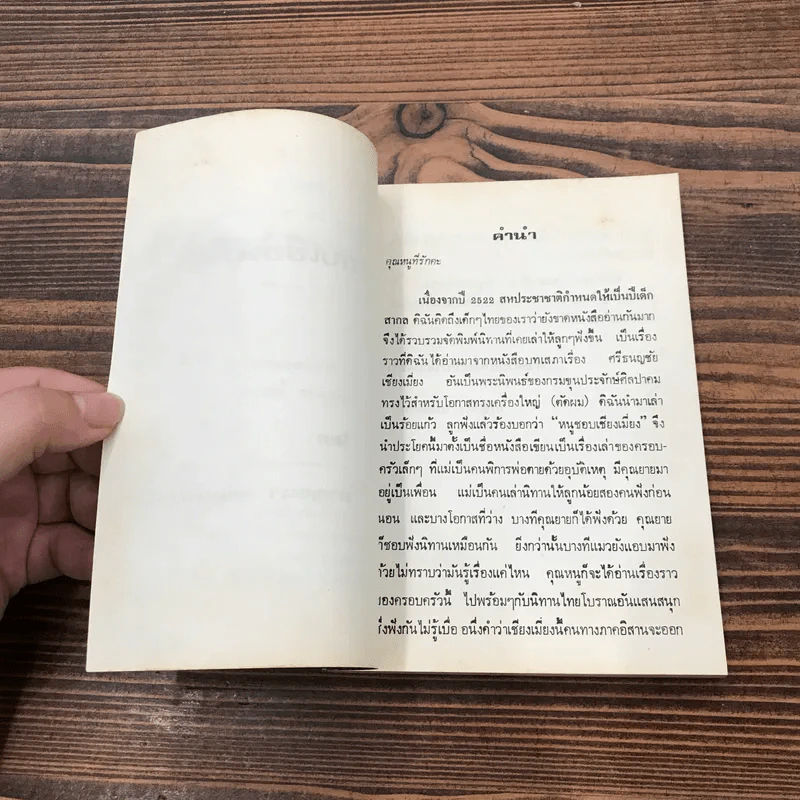 คำนำ
คุณหนูที่รักคะ
เนื่องจากปี 2522 สหประชาชาติกำหนดให้เป็นปีเด็ก
สากล ดิฉันคิดถึงเด็กๆไทยของเราว่ายังขาดหนังสืออ่านกันมาก
จึงได้รวบรวมจัดพิมพ์นิทานที่เคยเล่าให้ลูกๆฟังขึ้น เป็นเรื่อง
ราวที่ดิฉันได้อ่านมาจากหนังสือบทเสภาเรื่อง ศรีธนญชัย
เชียงเมี่ยง อันเป็นพระนิพนธ์ของกรมขุนประจักษ์ศิลปาคม
ทรงไว้สำหรับโอกาสทรงเครื่องใหญ่ (ตัดผม) ดิฉันนำมาเล่า
เป็นร้อยแก้ว ลูกฟังแล้วร้องบอกว่า “หนูชอบเชียงเมี่ยง” จึง
นำประโยคนี้มาตั้งเป็นชื่อหนังสือเขียนเป็นเรื่องเล่าของครอบ-
ครัวเล็กๆ ที่แม่เป็นคนพิการพ่อตายด้วยอุบัติเหตุ มีคุณยายมา
อยู่เป็นเพื่อน แม่เป็นคนเล่านิทานให้ลูกน้อยสองคนฟังก่อน
นอน และบางโอกาสที่ว่าง บางทีคุณยายก็ได้ฟังด้วย คุณยาย
ก็ชอบฟังนิทานเหมือนกัน ยิ่งกว่านั้นบางทีแมวยังแอบมาฟัง
ด้วยไม่ทราบว่ามันรู้เรื่องแค่ไหน คุณหนูก็จะได้อ่านเรื่องราว
ของครอบครัวนี้ ไปพร้อมๆกับนิทานไทยโบราณอันแสนสนุก
ซึ่งฟังกันไม่รู้เบื่อ อนึ่งคำว่าเชียงเมี่ยงนี้คนทางภาคอิสานจะออก